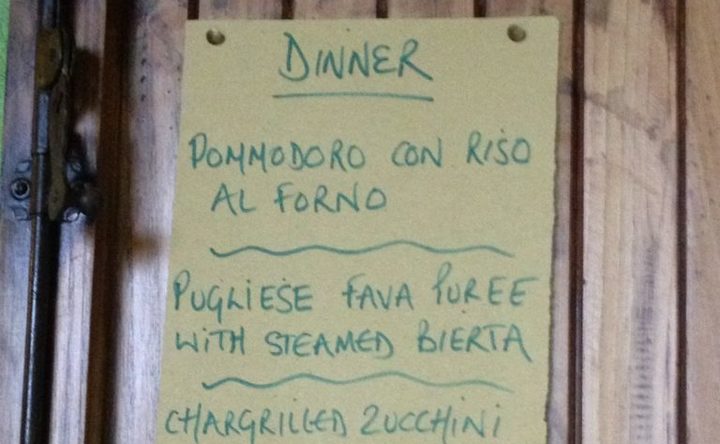 DINNER
POMMODORO CON RISO
AL FORNO
PUGLIESE FAVA PUREE
WITH STEAMED BIERTA
CHARGRILLED ZUCCHINI